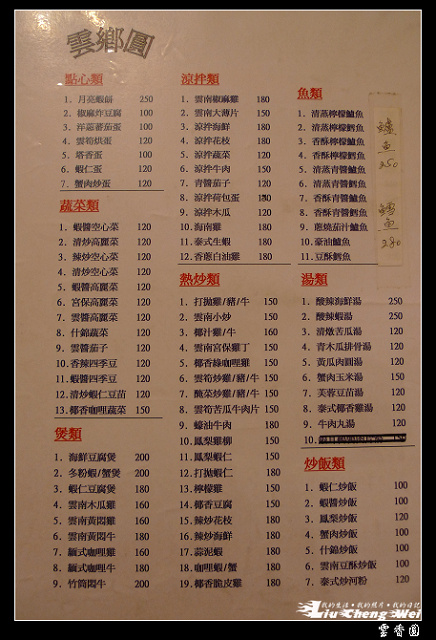 雲鄉圓
點心類
1. 月亮蝦餅 250
2. 椒麻炸豆腐 100
3. 洋蔥蕃茄蛋 100
4. 雲筍烘蛋 120
5. 塔香蛋 100
6. 蝦仁蛋 120
7. 蟹肉炒蛋 120
蔬菜類
1. 蝦醬空心菜 120
2. 清炒高麗菜 120
3. 辣炒空心菜 120
4. 清炒空心菜 120
5. 蝦醬高麗菜 120
6. 宮保高麗菜 120
7. 雲醬高麗菜 120
8. 什錦蔬菜 120
9. 雲醬茄子 120
10. 香辣四季豆 120
11. 蝦醬四季豆 120
12. 清炒蝦仁豆苗 120
13. 椰香咖哩蔬菜 150
煲類
1. 海鮮豆腐煲 200
2. 冬粉蝦/蟹煲 200
3. 蝦仁豆腐煲 180
4. 雲南木瓜雞 160
5. 雲南黃悶雞 160
6. 雲南黃悶牛 180
7. 緬式咖哩雞 160
8. 緬式咖哩牛 180
9. 竹筒悶牛 200
涼拌類
1. 雲南椒麻雞 180
2. 雲南大薄片 150
3. 涼拌海鮮 180
4. 涼拌花枝 180
5. 涼拌蔬菜 120
6. 涼拌牛肉 150
7. 青醬茄子 120
8. 涼拌荷包蛋 130
9. 涼拌木瓜 120
10. 海南雞 180
11. 泰式生蝦 180
12. 香蔥白油雞 180
熱炒類
1. 打拋雞/豬/牛 150
2. 雲南小炒 150
3. 椰汁雞/牛 160
4. 雲南宮保雞丁 150
5. 椰香綠咖哩雞 150
6. 雲筍炒雞/豬/牛 150
7. 醃菜炒雞/豬/牛 150
8. 雲筍苦瓜牛肉片 150
9. 蠔油牛肉 180
10. 鳳梨雞柳 150
11. 鳳梨蝦仁 150
12. 打拋蝦仁 180
13. 檸檬雞 150
14. 椰香豆腐 150
15. 辣炒花枝 180
16. 辣炒海鮮 180
17. 蒜泥蝦 180
18. 咖哩蝦/蟹 180
19. 椰香脆皮雞 180
魚類
1. 清蒸檸檬鱸魚
2. 清蒸檸檬鱈魚
3. 香酥檸檬鱸魚
4. 香酥檸檬鱈魚
5. 清蒸青醬鱸魚
6. 清蒸青醬鱈魚
7. 香酥青醬鱸魚
8. 香酥青醬鱈魚
9. 蔥燒茄汁鱸魚
10. 豪油鱸魚
11. 豆酥鱈魚
鱸魚 250
鱈魚 280
湯類
1. 酸辣海鮮湯 250
2. 酸辣蝦湯 250
3. 清燉苦瓜湯 120
4. 青木瓜排骨湯 120
5. 黃瓜肉圓湯 120
6. 蟹肉玉米湯 150
7. 芙蓉豆苗湯 120
8. 泰式椰香雞湯 120
9. 牛肉丸湯 120
10. 150
炒飯類
1. 蝦仁炒飯 100
2. 蝦醬炒飯 100
3. 鳳梨炒飯 120
4. 蟹肉炒飯 100
5. 什錦炒飯 100
6. 雲南豆酥炒飯 100
7. 泰式炒河粉 120
我的生活•我的照片•我的日記
Liu Cheng Wei
雲香圓